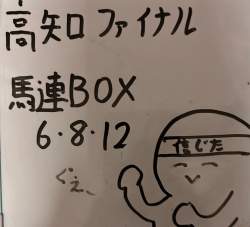 高知ファイナル
馬連BOX
6・8・12
信じた
ぐぇ、